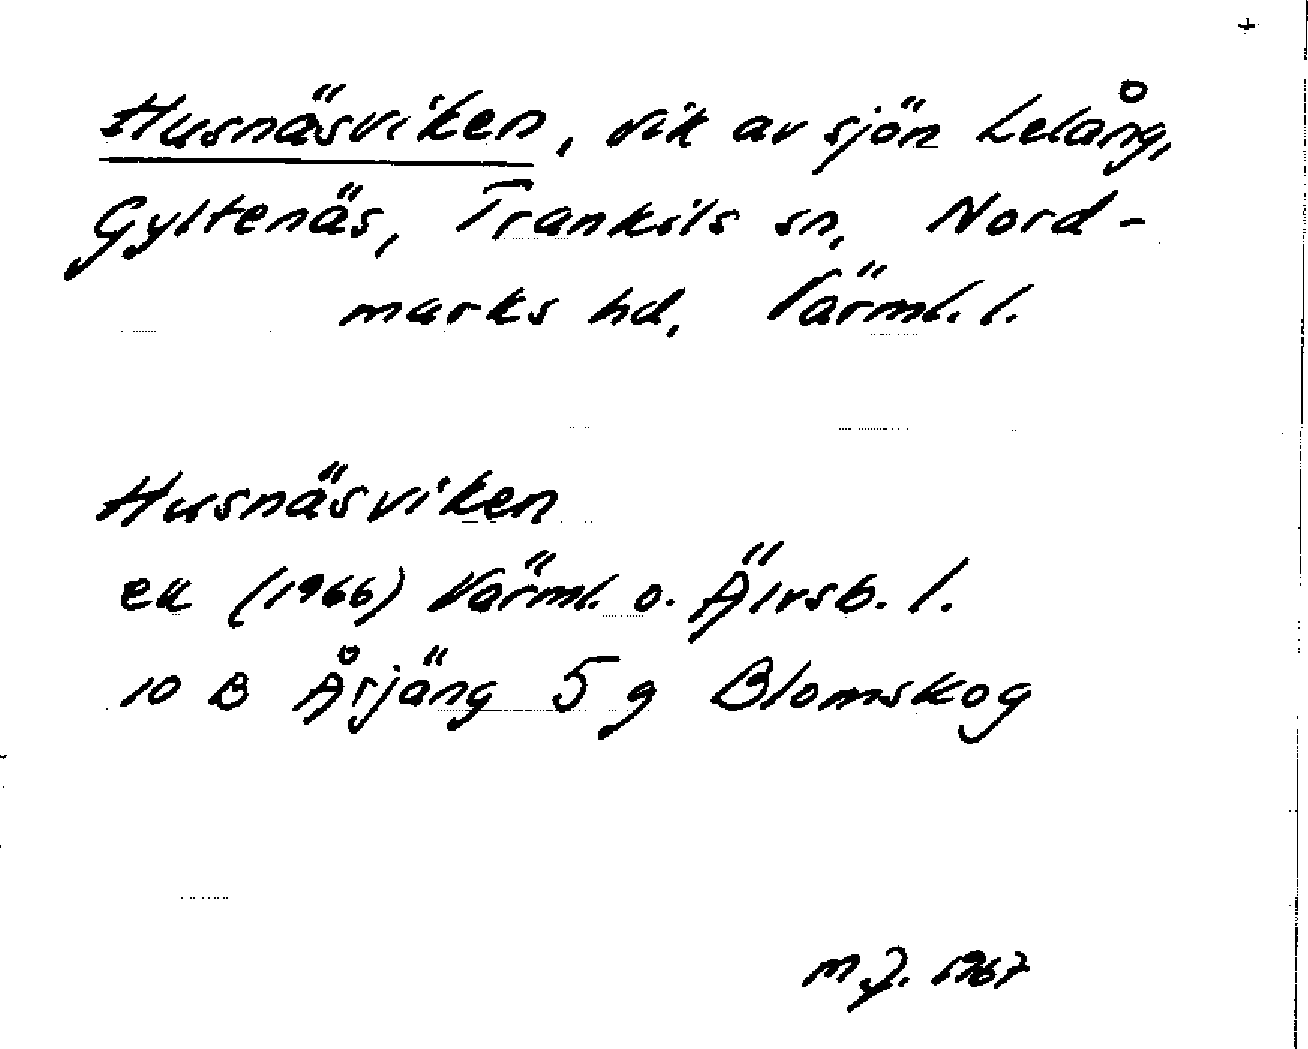 +
Husnäsviken, vik av sjön Lelång,
Gyltenäs, Tranksils sn, Nord-
marks hd, Värml. l.
Husnäsviken
ek (1966) Värml. o. Älvsb. l.
10 B Årjäng 5 g Blomskog
M J. 1967